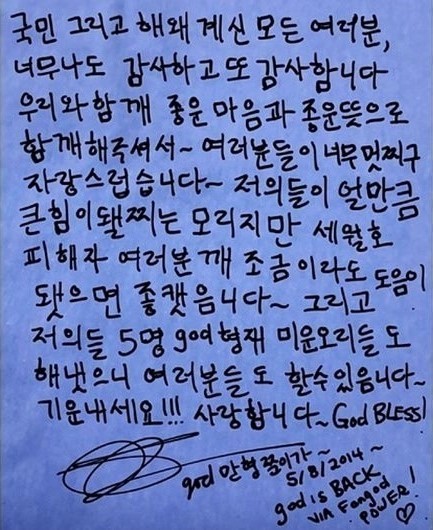 국민 그리고 해왜 계신 모든 여러분,
너무나도 감사하고 또 감사함니다
우리와 함깨 좋운 마음과 좋운뜻으로
함깨해주셔서~ 여러분들이 너무 멋찌구
자랑스럽습니다~ 저의들이 얼만큼
큰힘이 돼찌는 모리지만 세월호
피해자 여러분깨 조금이라도 도음이
됏으면 좋캣음니다~ 그리고
저의들 5명 god 형재 미운오리들도
해냇으니 여러분들도 할수있음니다~
기운내세요!!! 사랑합니다~ God BLESS!
god 만형쭌이가~
5/8/2014~
god is BACK
VIA Fangod
POWER!
♡